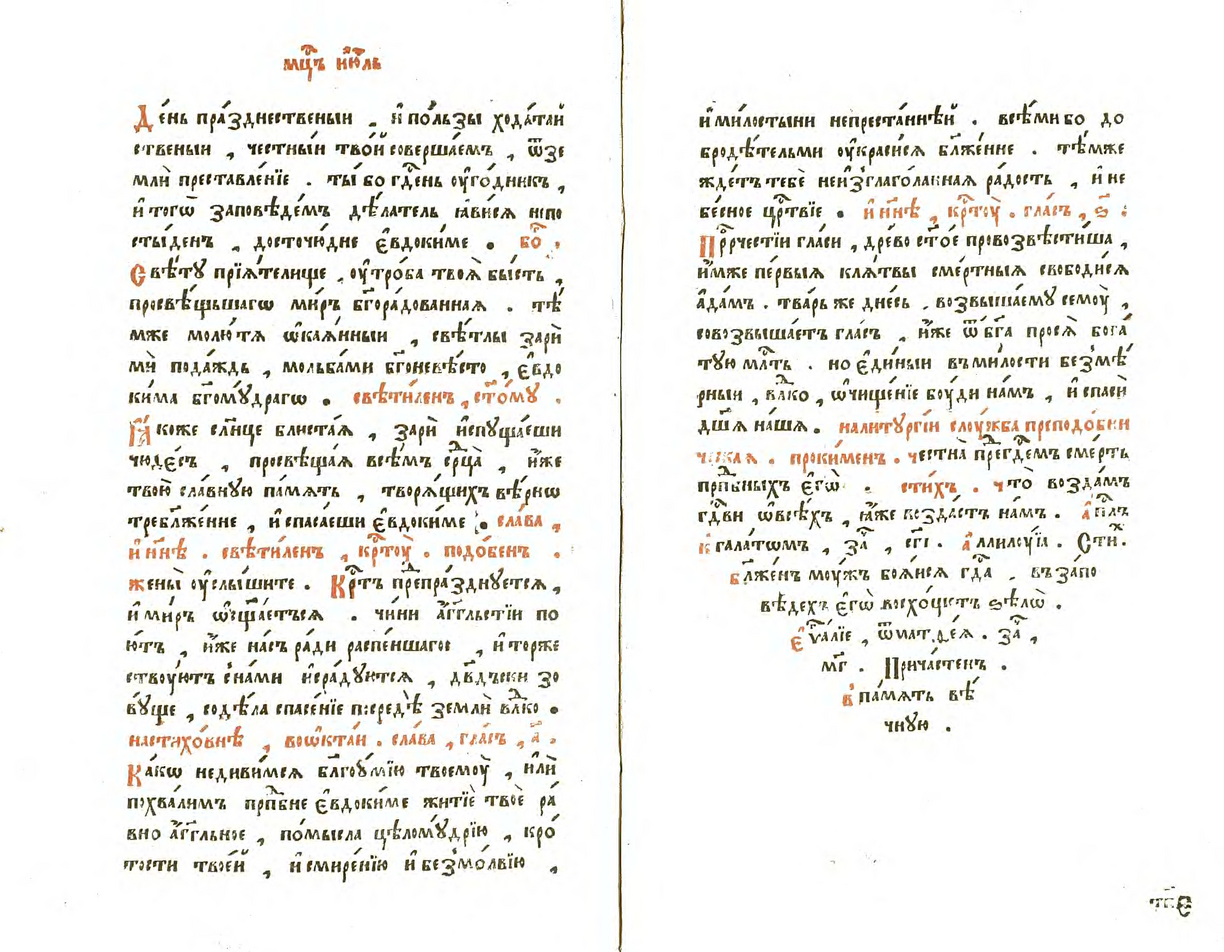 мц҇ъ и҆ю҆ль
Де́нь пра́зднественыи , и҆ по́льзы хода́таи
ственыи , че́стныи твои̑ соверша́емъ , ѿзе
млѝ преставле́нїе . ты́ бо гд҇ень оу҆го́дникъ ,
и҆ того̀ заповѣ́демъ дѣ́латель ꙗ҆ви́сѧ непо
сты́денъ , досточю́дне є҆вдокиме . бо҇ .
Свѣ́тꙋ прїѧ́телище , оу҆тро́ба твоѧ̀ бы́сть ,
просвѣ́щьшагѡ ми́ръ бг҃ора́дованнаѧ . тѣ́
мже молю́тѧ ѡ҆каѧ́нныи , свѣ́тлы зарѝ
мѝ пода́ждь , мольба́ми бг҃оневѣ́сто , є҆вдо
ки́ма бг҃омꙋ́драгѡ . свѣти́ленъ , ст҃о́мꙋ .
Ꙗ҆́коже сл҃нце блиста́ѧ , зарѝ и҆спꙋща́еши
чюде́съ , просвѣща́ѧ всѣ́мъ ср҇ца̀ , и҆́же
твою̀ сла́внꙋю па́мѧть , творѧ́щихъ вѣ́рнѡ
требл҃же́нне , и҆ спаса́еши є҆вдоки́ме . сла́ва ,
и҆ ны́нѣ . свѣти́ленъ , кр҇тоу̀ . подо́бенъ .
жены̀ оу҆слы́шите . Кр҇тъ препра́зднꙋетсѧ ,
и҆ ми́ръ ѡ҆сщ҃а́етъсѧ . чи́ни а҆́гг҃льстїи по
ю́тъ , и҆́же на́съ ра́ди распе́ншагос , и҆ торже
ствоу́ютъ с на́ми и҆ ра́дꙋютсѧ , дв҃дъски зо
вꙋ́ще , содѣ́ла спасе́нїе посредѣ̀ землѝ влк҇о .
настихо́внѣ , воѡ҆кта́и . сла́ва , гла́съ , а҃ .
Ка́кѡ недиви́мсѧ бл҃гоꙋ́мїю твоемоу̀ , и҆лѝ
похва́лимъ прпб҇не є҆вдоки́ме житїѐ твоѐ ра́
вно а҆́гг҃льное , по́мысла цѣломꙋ́дрїю , кро́
тости твое́й , и҆ смире́нїю и҆ безмо́лвїю ,
и҆ ми́лостыни непреста́ннѣй . всѣ́ми бо до
бродѣ́тельми оу҆краси́сѧ бл҃же́нне . тѣ́мже
жде́тъ тебѐ неизглаго́ланнаѧ ра́дость , и҆ не
бе́сное цр҇твїе . и҆ ны́нѣ , кр҇тоу̀ . гла́съ , ѕ҃ :
Прр҇честїи гла́си , дре́во ст҃о́е провозвѣсти́ша ,
и҆́мже пе́рвыѧ клѧ́твы сме́ртныѧ свободи́сѧ
а҆да́мъ . тва́рь же дне́сь , возвыша́емꙋ семоу̀ ,
совозвыша́етъ гла́съ , и҆́же ѿ бг҃а просѧ̀ бога́
тꙋю мл҇ть . но є҆ди́ныи въ ми́лости безмѣ́
рныи , влк҇о , ѡ҆чище́нїе боу́ди на́мъ , и҆ спасѝ
дш҃ѧ на́шѧ . на литургі́и слоу́жба преподо́бни
ческаѧ . проки́менъ . честна̀ пред҇гд҇емъ сме́рть
прпб҇ныхъ є҆гѡ̀ . сти́хъ . что̀ возда́мъ
гд҇ви ѡ҆ всѣ́хъ , ꙗ҆́же возда́стъ на́мъ . а҆п҇лъ
к гала́тѡмъ , за҇ , сг҃і . а҆ллилоу́їа . Сти́х .
бл҃же́нъ моу́жъ боѧ́исѧ гд҇а , въ за́по
вѣдехъ є҆гѡ̀ восхо́щетъ ѕѣлѡ̀ .
є҆ѵ҇алїе , ѿ матѳе́ѧ . за҇ ,
мг҃ . Прича́стенъ .
в па́мѧть вѣ́
чнꙋю .